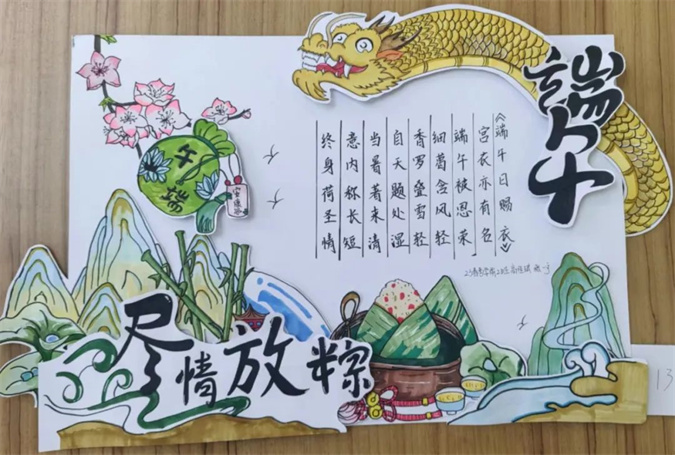 端午
《端午日赐衣》
宫衣亦有名
端午被恩荣
细葛含风轻
香罗叠雪轻
自天题处湿
当暑著来清
意内称长短
终身荷圣情
午端
尽情放粽
13